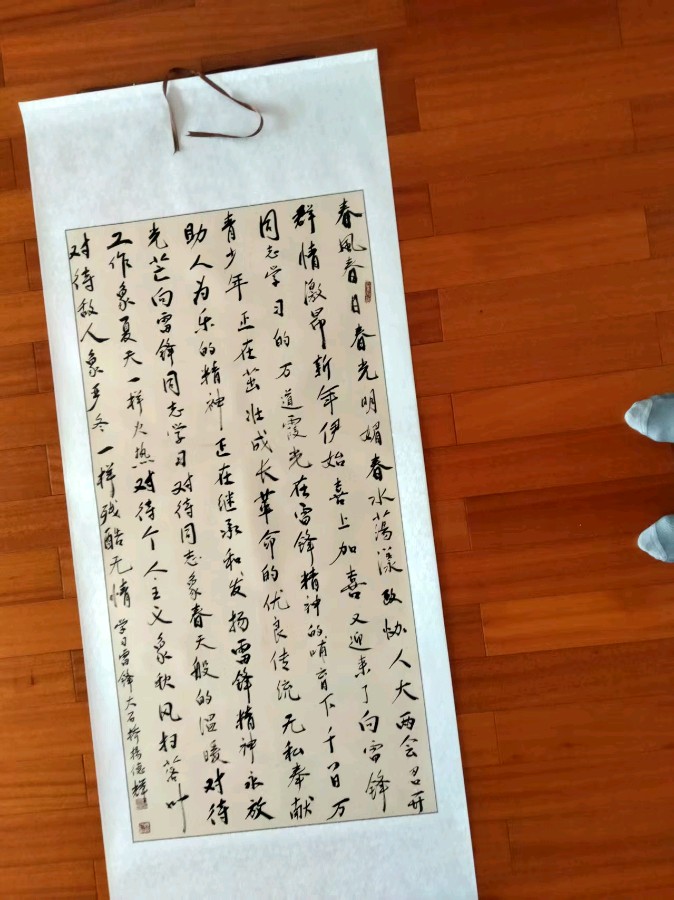 春风春日春光明媚春水荡漾政协人大两会召开
群情激昂新年伊始喜上加喜又迎来了向雷锋
同志学习的万道霞光在雷锋精神的哺育下千百万
青少年正在茁壮成长革命的优良传统无私奉献
助人为乐的精神正在继承和发扬雷锋精神永放
光芒向雷锋同志学习对待同志象春天般的温暖对待
工作象夏天一样火热对待个人主义象秋风扫落叶
对待敌人象严冬一样残酷无情 学习雷锋 大石桥杨德辉